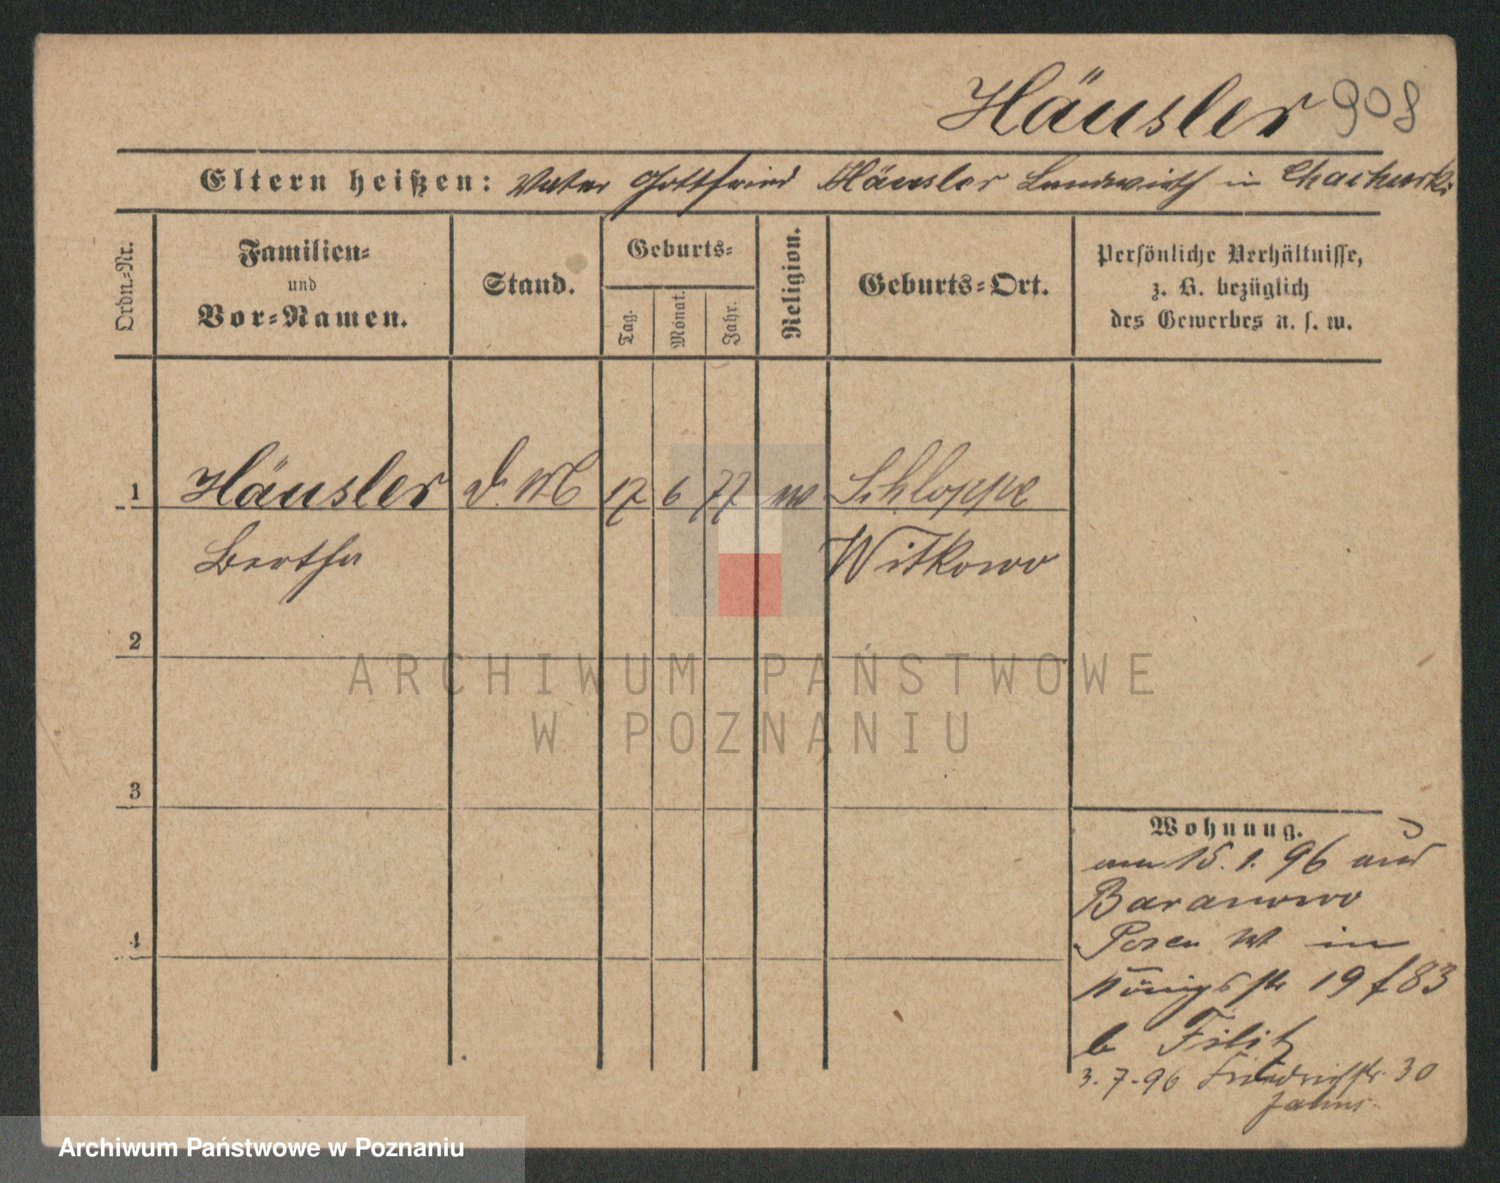 Häusler 908
Eltern heißen: Vater Gottfried Häusler Landwirth in
Ordn.-Nr.
Familien-
und
Vor-Namen.
Stand.
Geburts-
Tag.
Monat.
Jahr.
Religion.
Geburts-Ort.
Persönliche Verhältnisse,
z. B. bezüglich
des Gewerbes u. s. w.
1 Häusler d. M 17 6 77 Schloppe
Bertha Witkowo
2
3
4
ARCHIWUM PAŃSTWOWE
W POZNANIU
Wohnung.
am 15. 1. 96 aus
Baranowo
Posen W in
Königsstr 19 f 83
b Filitz
3. 7. 96 Friedrichstr. 30
Jahns
Archiwum Państwowe w Poznaniu